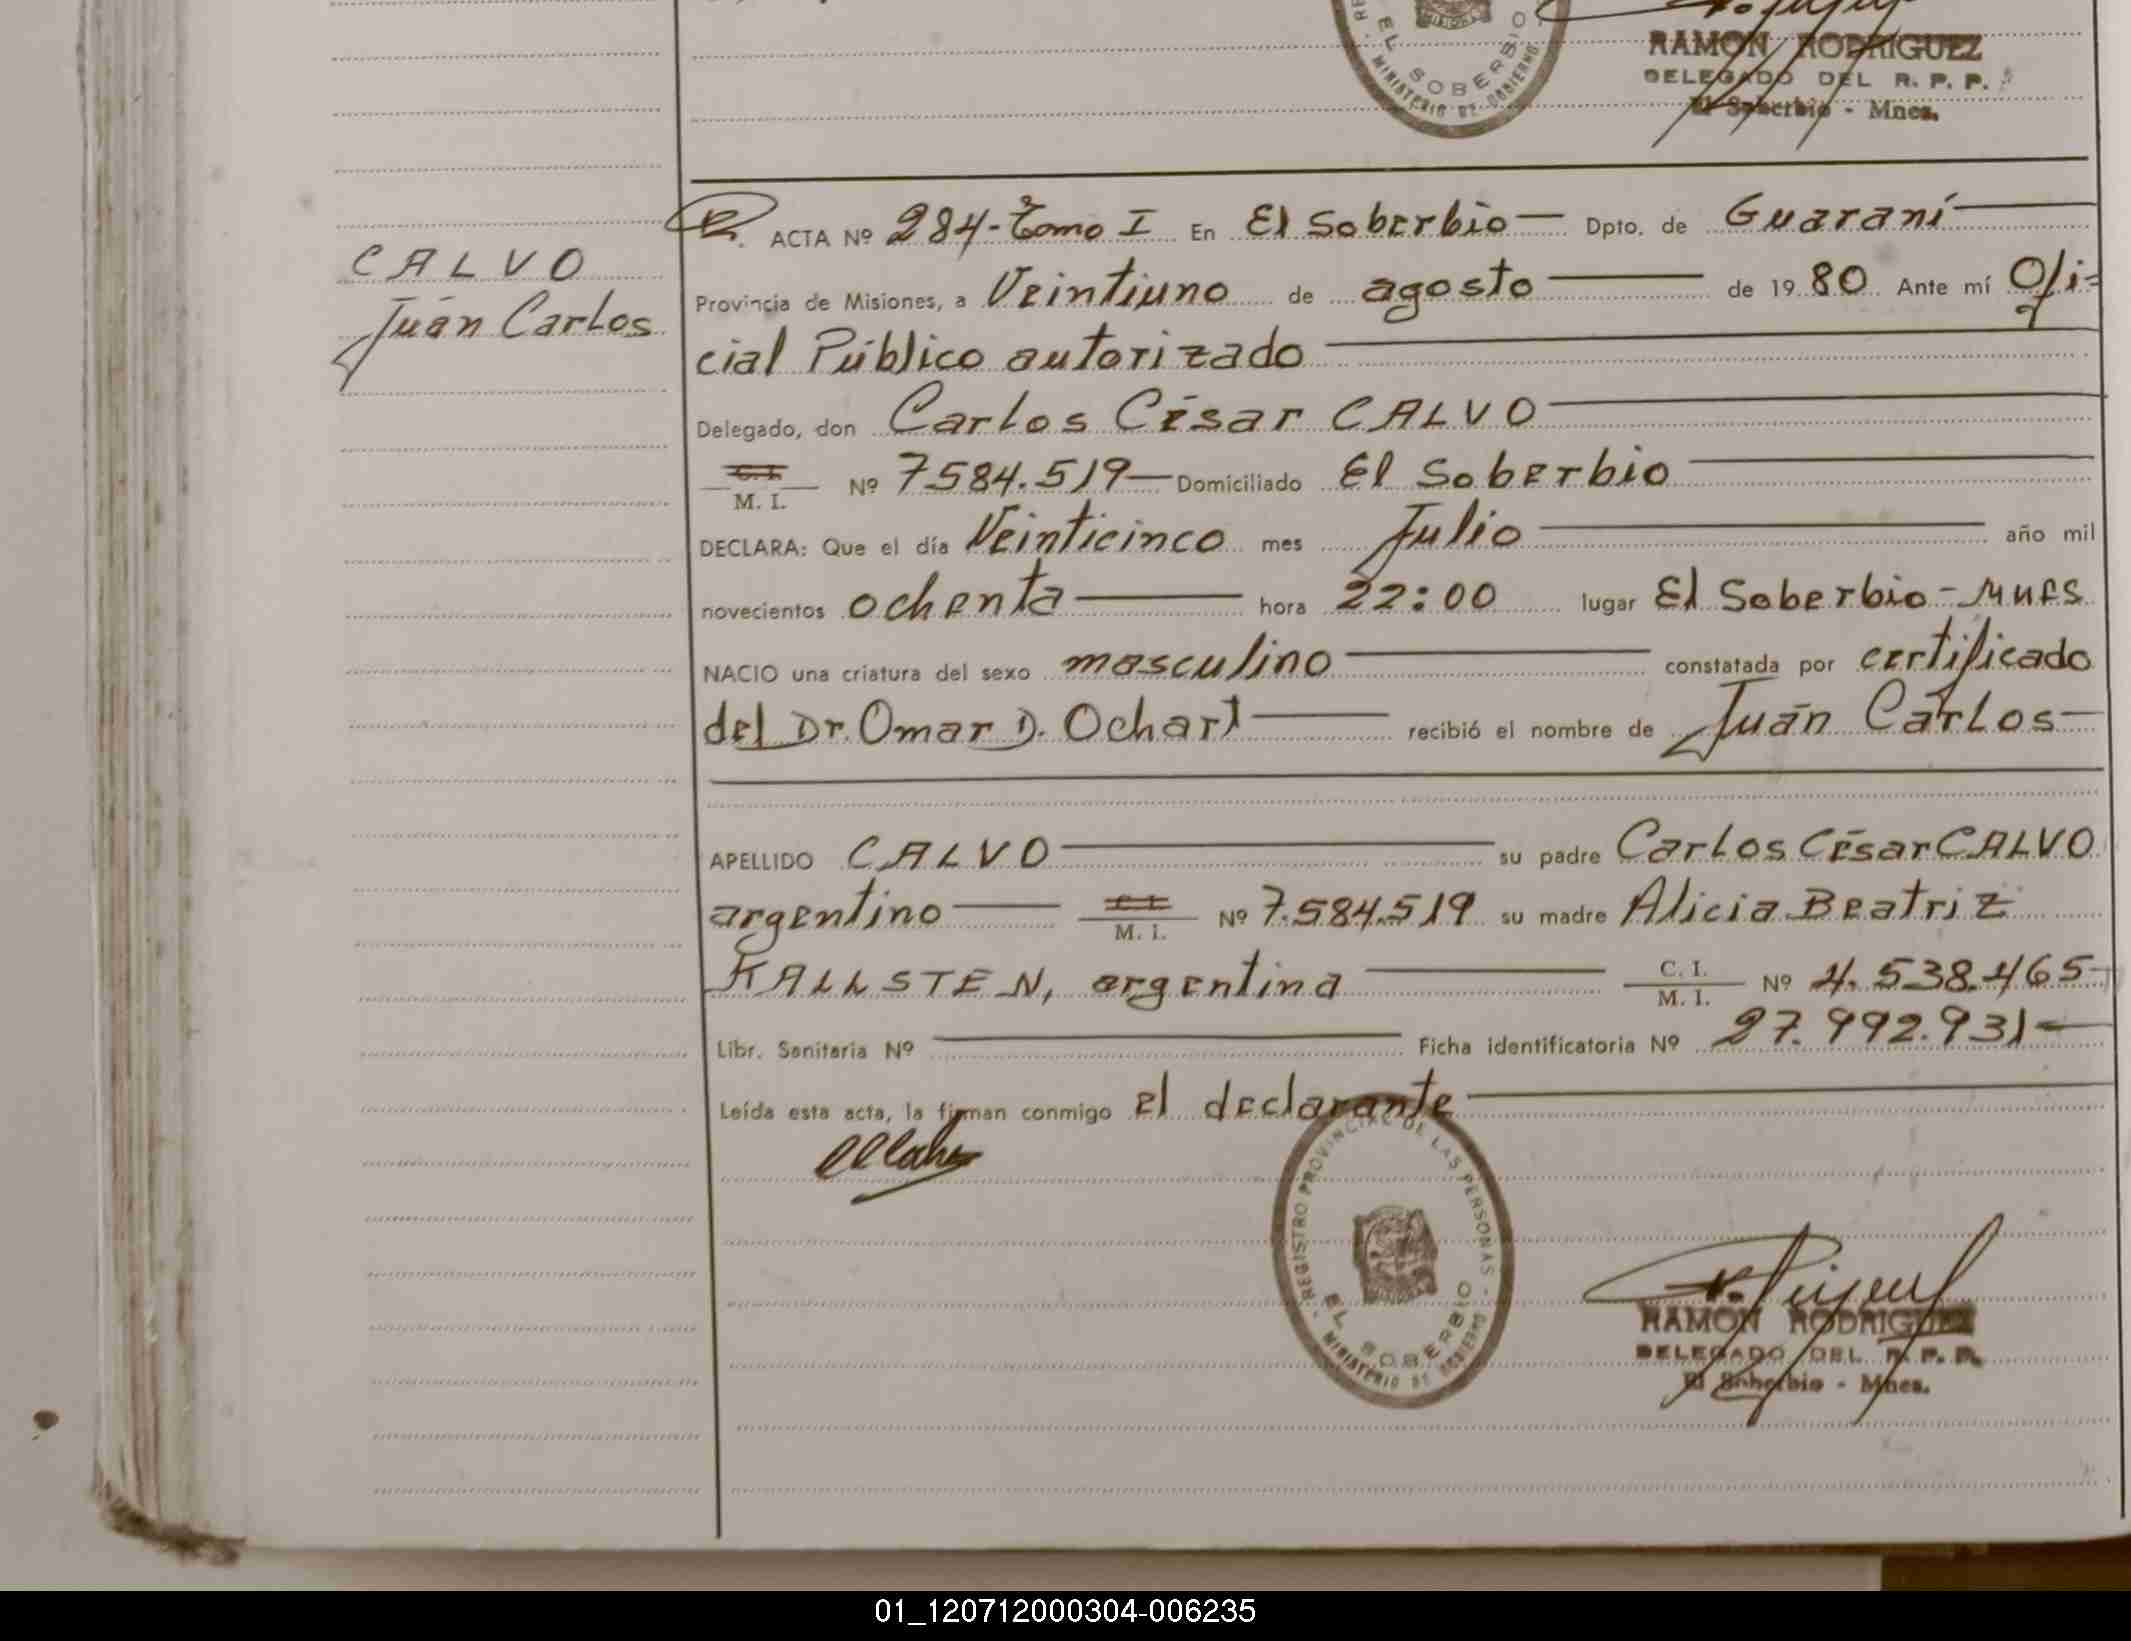 EL SOBERBIO
MINISTERIO DE GOBIERNO
RAMON RODRIGUEZ
DELEGADO DEL R. P. P.
El Soberbio - Mnes.
CALVO
Juán Carlos
ACTA Nº 284-Tomo I En El Soberbio — Dpto. de Guaraní
Provincia de Misiones, a Veintiuno de agosto de 1980 Ante mí Ofi=
cial Público autorizado
Delegado, don Carlos César CALVO
C.I.
M. I. Nº 7584.519 — Domiciliado El Soberbio
DECLARA: Que el día Veinticinco mes Julio año mil
novecientos ochenta hora 22:00 lugar El Soberbio - Mnes
NACIO una criatura del sexo masculino constatada por certificado
del Dr. Omar D. Ochart recibió el nombre de Juán Carlos —
APELLIDO CALVO su padre Carlos César CALVO
argentino C.I.
M. I. Nº 7.584.519 su madre Alicia Beatriz
KALLSTEN, argentina C. I.
M. I. Nº 4.538.465
Libr. Sanitaria Nº Ficha identificatoria Nº 27.992.931 —
Leída esta acta, la firman conmigo el declarante
REGISTRO PROVINCIAL DE LAS PERSONAS
EL SOBERBIO
MINISTERIO DE GOBIERNO
RAMON RODRIGUEZ
DELEGADO DEL R. P. P.
El Soberbio - Mnes.
01_120712000304-006235